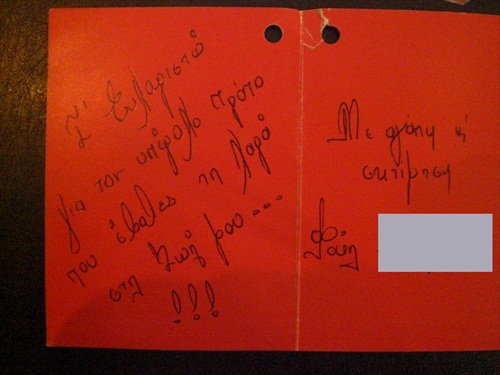 Σ' Ευχαριστώ
για τον υπέροχο τρόπο
που έβαλες τη χαρά
στη ζωή μου...
!!!
Με αγάπη κι
εκτίμηση